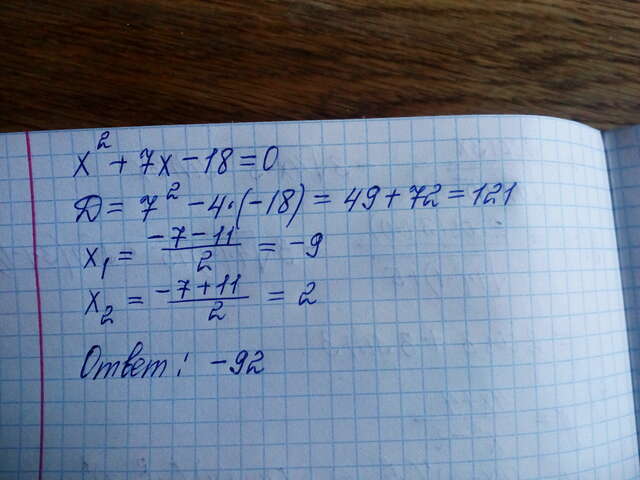 x² + 7x - 18 = 0
Д = 7² - 4·(-18) = 49 + 72 = 121
x₁ = (-7-11)/2 = -9
x₂ = (-7+11)/2 = 2
Ответ: -92